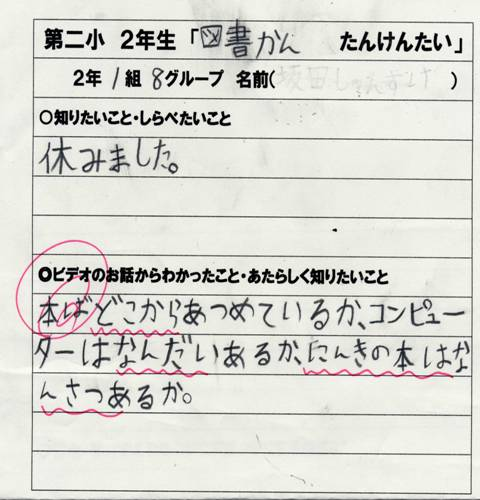 第二小 2年生「図書かん たんけんたい」
2年 1組 8グループ 名前( )
○知りたいこと・しらべたいこと
休みました。
○ビデオのお話からわかったこと・あたらしく知りたいこと
本はどこからあつめているか、コンピュー
ターはなんだいあるか、にんきの本はな
んさつあるか。